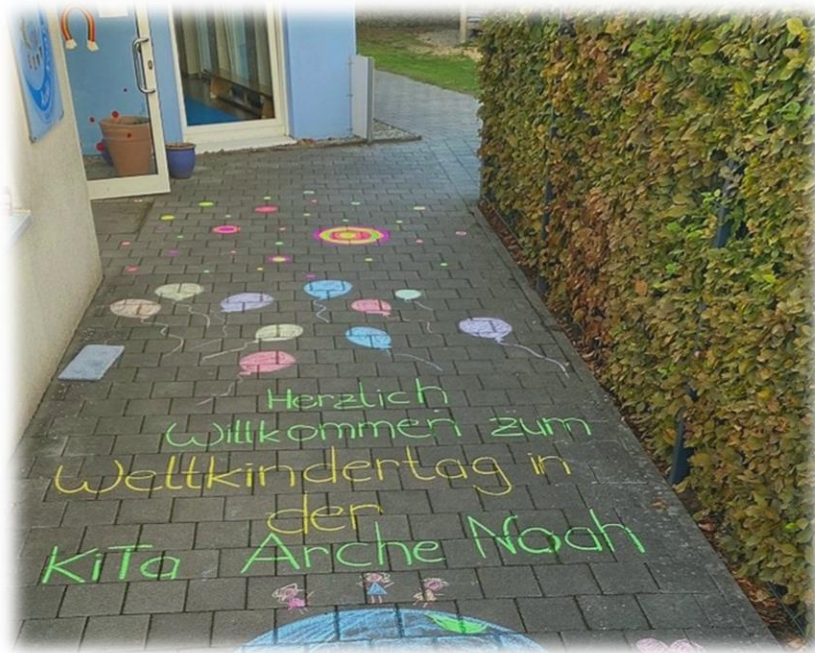 Herzlich
Willkommen zum
Weltkindertag in
der
KiTa Arche Noah